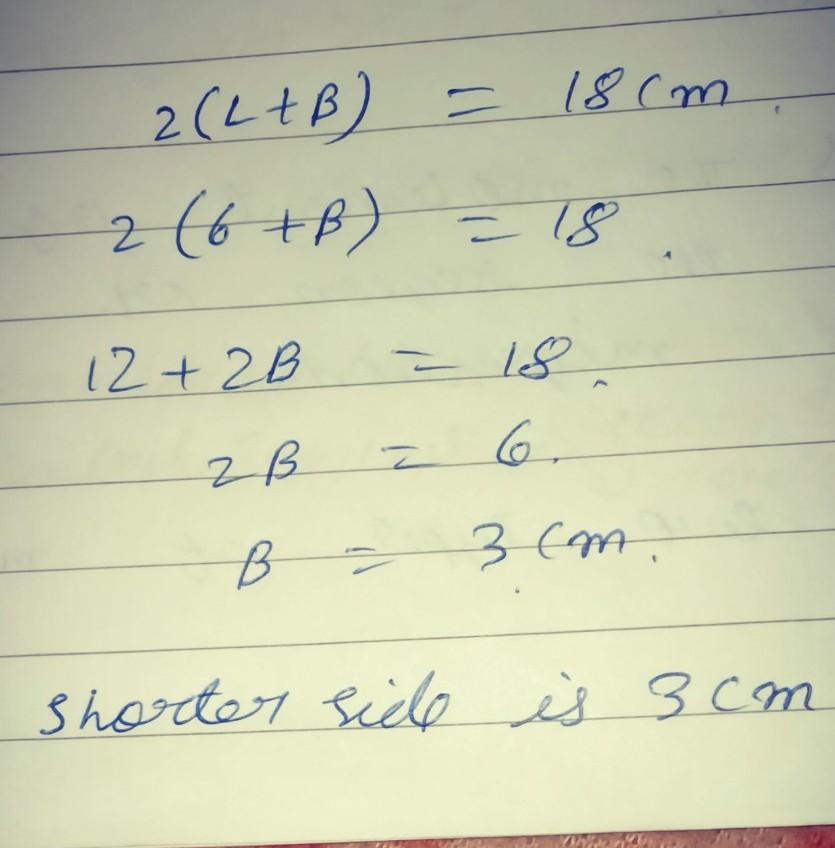 2(L+B) = 18 cm.
2(6+B) = 18.
12+2B = 18.
2B = 6.
B = 3 cm.
shorter side is 3 cm